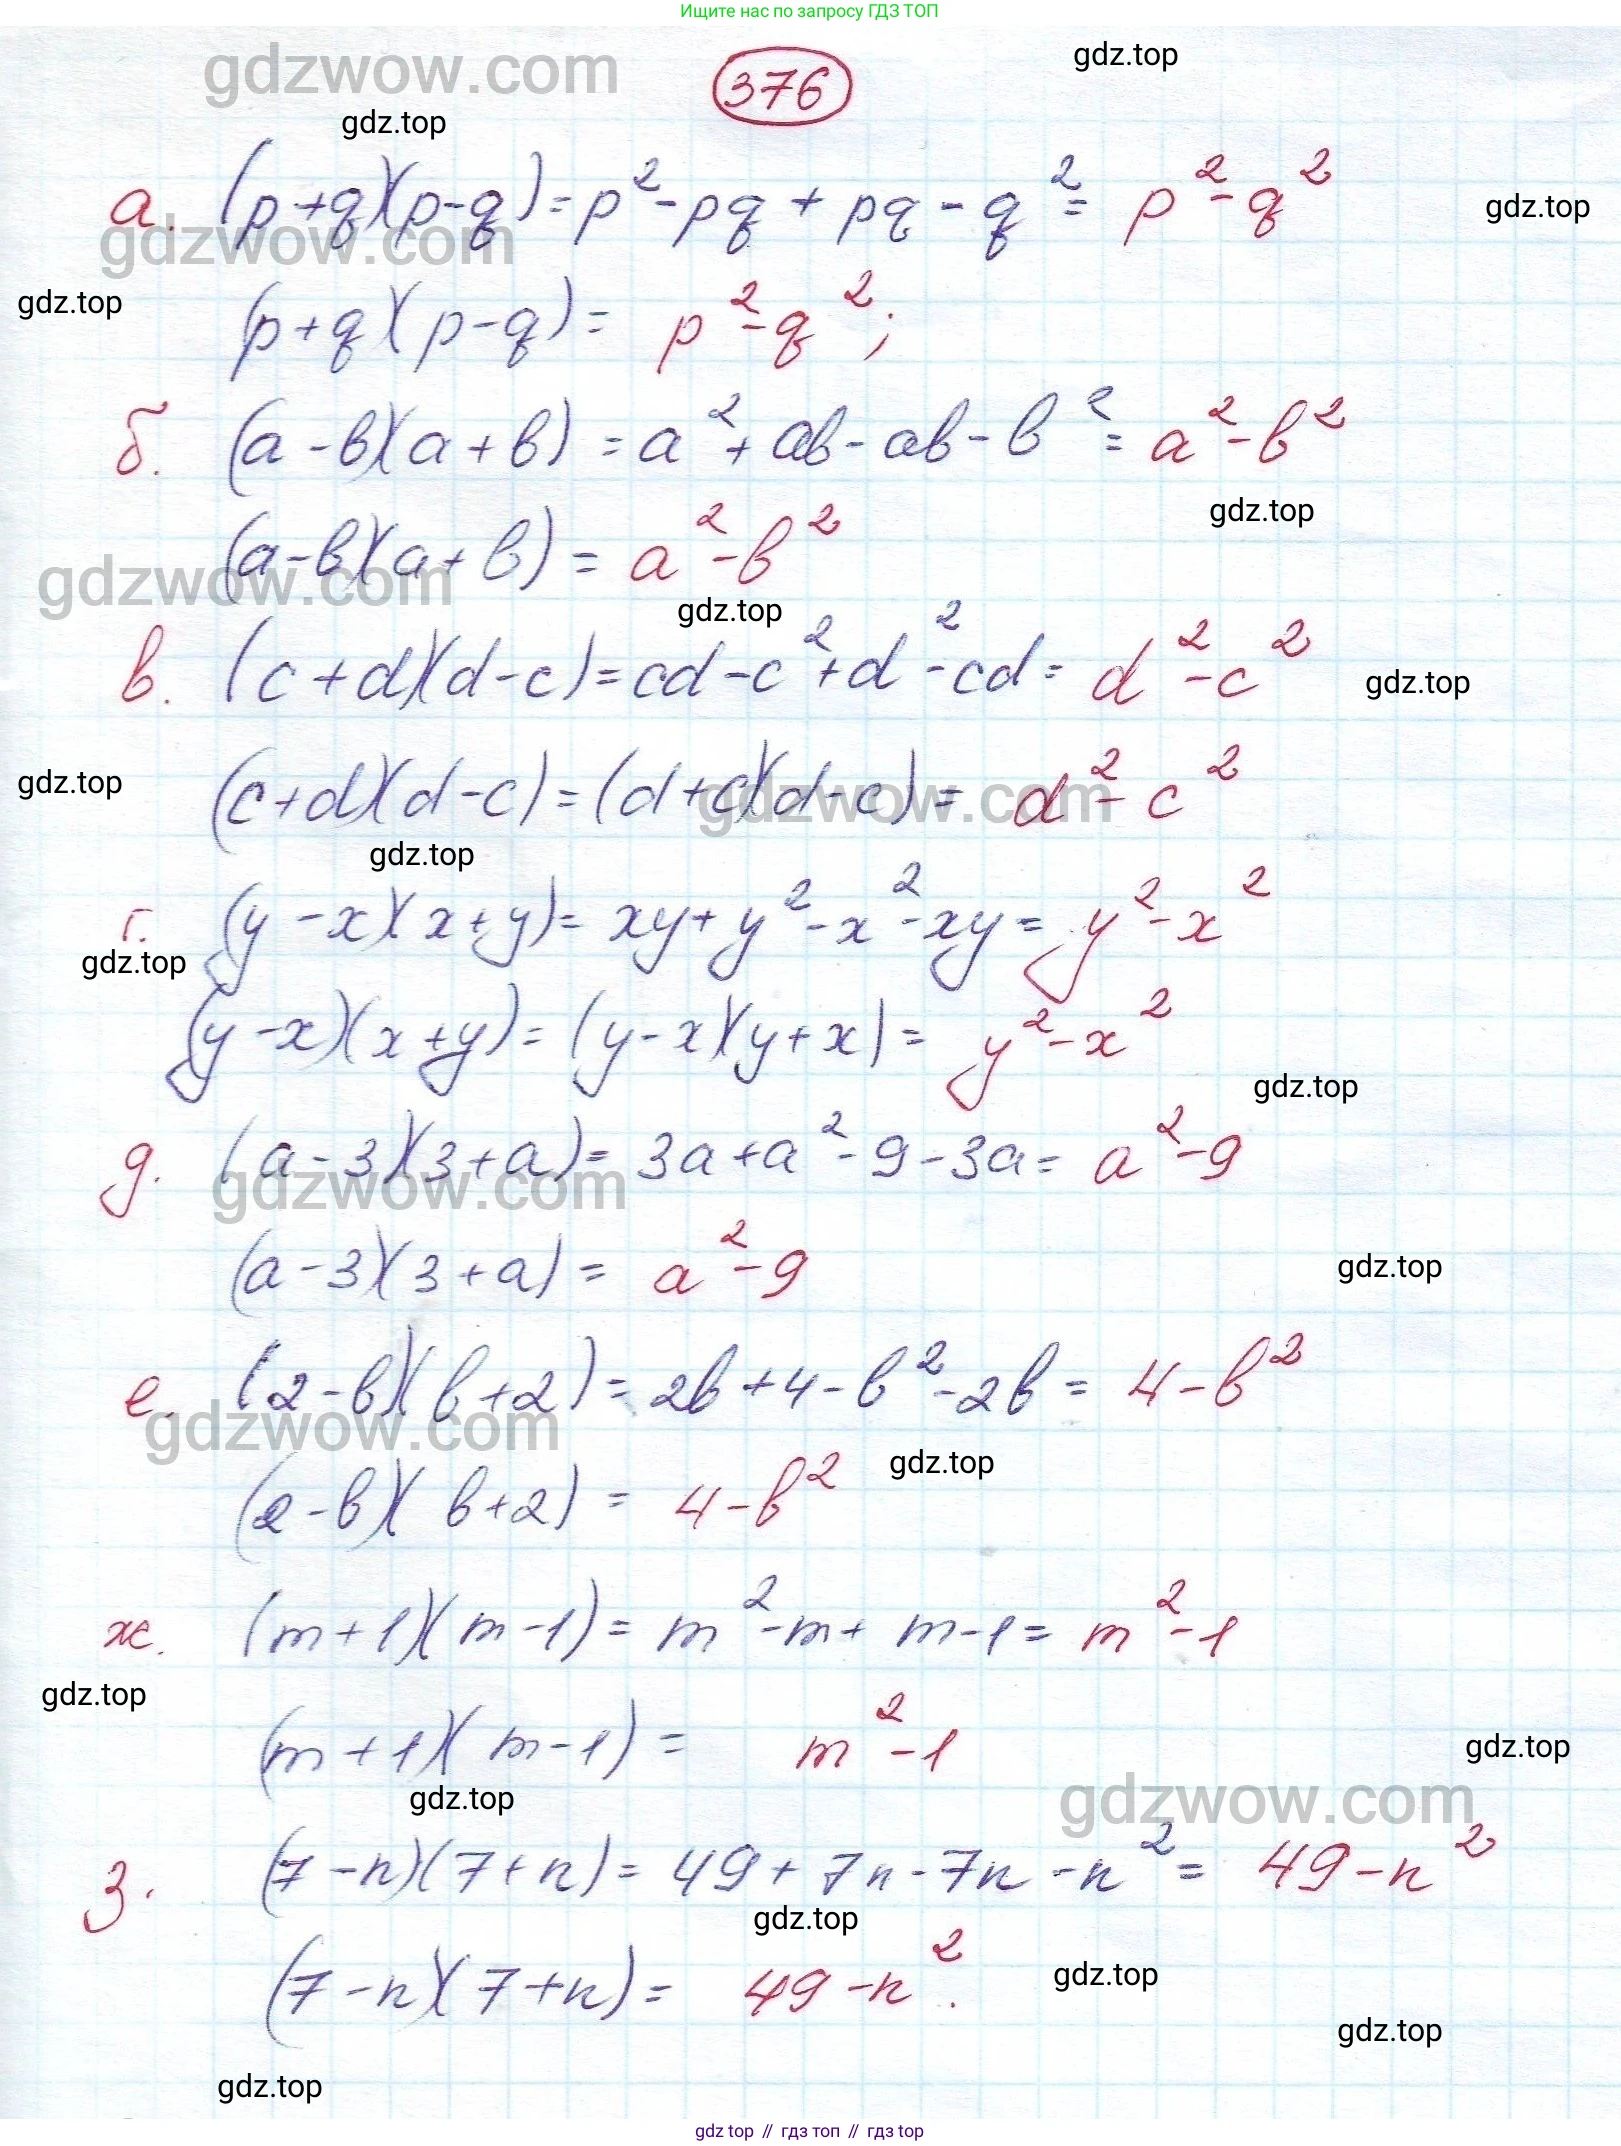 Ищите нас по запросу ГДЗ ТОП
gdzwow.com
376
gdz.top
gdz.top
а. (p+q)(p-q)=p²-pq+pq-q²= p²-q²
gdz.top
gdzwow.com
gdz.top
(p+q)(p-q)= p²-q²;
б. (a-b)(a+b)=a²+ab-ab-b²= a²-b²
gdz.top
(a-b)(a+b)= a²-b²
gdzwow.com
gdz.top
в. (c+d)(d-c)=cd-c²+d²-cd= d²-c²
gdz.top
gdz.top
(c+d)(d-c)=(d+c)(d-c)= d²-c²
gdzwow.com
gdz.top
г. (y-x)(x+y)= xy+y²-x²-xy= y²-x²
gdz.top
(y-x)(x+y)=(y-x)(y+x)= y²-x²
gdz.top
д. (a-3)(3+a)= 3a+a²-9-3a= a²-9
gdzwow.com
(a-3)(3+a)= a²-9
gdz.top
е. (2-b)(b+2)=2b+4-b²-2b= 4-b²
gdzwow.com
gdz.top
(2-b)(b+2)= 4-b²
ж. (m+1)(m-1)= m²-m+m-1= m²-1
gdz.top
(m+1)(m-1)= m²-1
gdz.top
gdz.top
gdzwow.com
з. (7-n)(7+n)=49+7n-7n-n²= 49-n²
gdz.top
(7-n)(7+n)= 49-n².
gdz.top
gdz.top
gdz.top
gdz top // гдз топ // гдз top